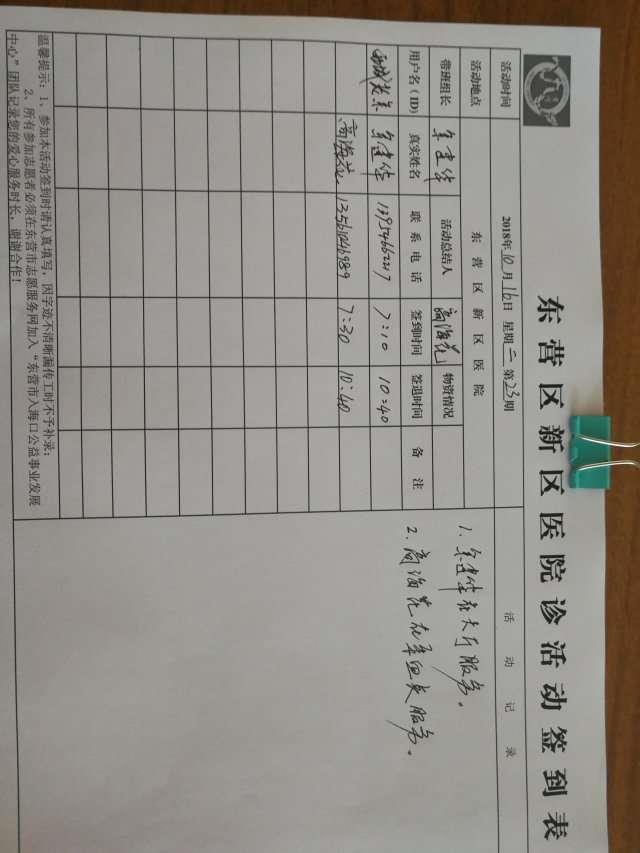 东营区新区医院诊活动签到表
活动时间 2018年10月16日 星期二 第23期 活动记录
活动地点 东营区新区医院
带班组长 牟建华 活动总结人 高海花 物资情况
用户名(ID) 真实姓名 联系电话 签到时间 签退时间 备注
牟建华 13954662247 7:10 10:40
高海花 13561046989 7:30 10:40
1. 牟建华在大厅服务。
2. 高海花在牟组长服务。
温馨提示：1、参加本活动签到时请认真填写，因字迹不清晰漏传工时不予补录；
2、所有参加志愿者必须在东营市志愿服务网加入“东营市入海口公益事业发展
中心”团队记录您的爱心服务时长，谢谢合作！